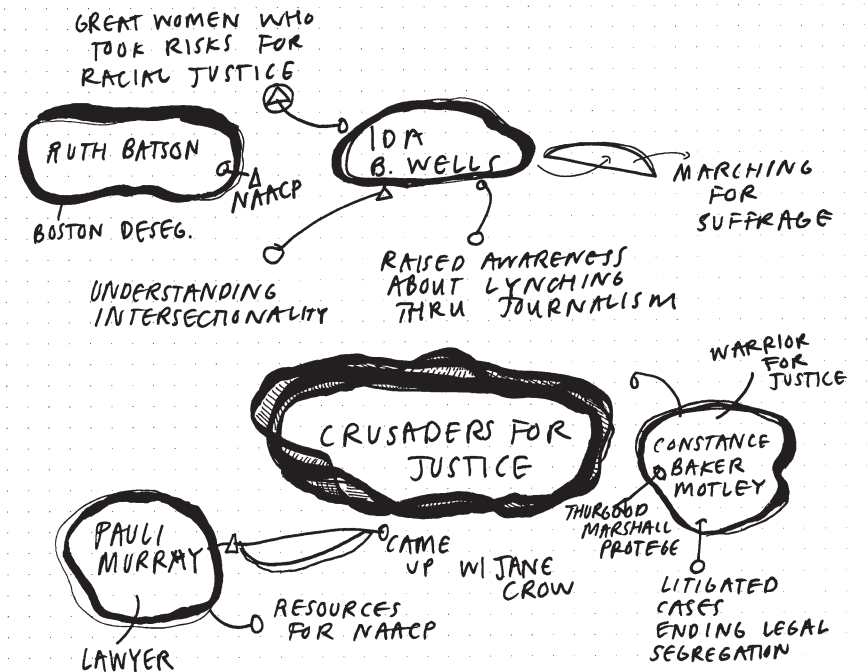 GREAT WOMEN WHO
TOOK RISKS FOR
RACIAL JUSTICE
RUTH BATSON
NAACP
BOSTON DESEG.
IDA
B. WELLS
MARCHING
FOR
SUFFRAGE
UNDERSTANDING
INTERSECTIONALITY
RAISED AWARENESS
ABOUT LYNCHING
THRU JOURNALISM
CRUSADERS FOR
JUSTICE
WARRIOR
FOR
JUSTICE
CONSTANCE
BAKER
MOTLEY
THURGOOD
MARSHALL
PROTEGE
LITIGATED
CASES
ENDING LEGAL
SEGREGATION
PAULI
MURRAY
CAME
UP W/ JANE
CROW
RESOURCES
FOR NAACP
LAWYER